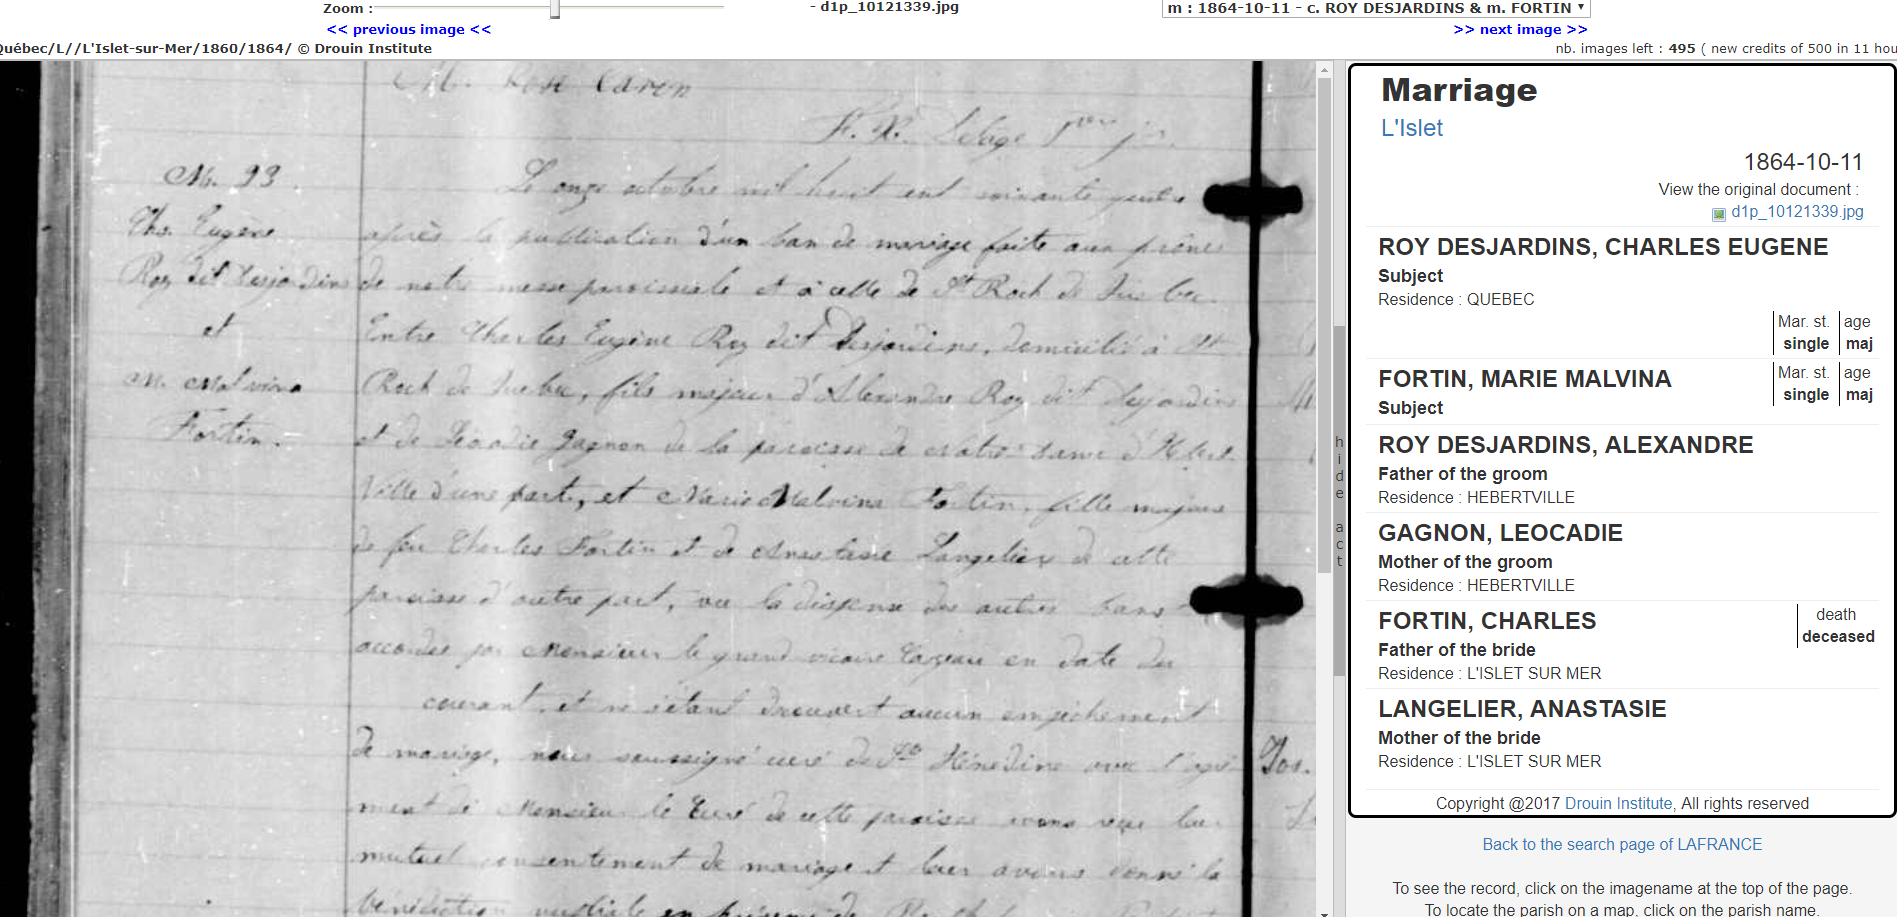 Zoom :
- d1p_10121339.jpg
m : 1864-10-11 - c. ROY DESJARDINS & m. FORTIN
<< previous image <<
>> next image >>
Québec/L//L'Islet-sur-Mer/1860/1864/ © Drouin Institute
nb. images left : 495 ( new credits of 500 in 11 hou
M. Caron
F. X. Delage
M. 93
Chs. Eugène
Roy dit Desjardins
et
M. Malvina
Fortin.
Le onze octobre mil huit cent soixante quatre
après la publication d'un ban de mariage faite aux prônes
de notre messe paroissiale et à celle de St Roch de Québec
Entre Charles Eugène Roy dit Desjardins, domicilié à St
Roch de Québec, fils majeur d'Alexandre Roy dit Desjardins
et de Léocadie Gagnon de la paroisse de Notre Dame d'Hébert
Ville d'une part, et Marie Malvina Fortin, fille majeure
de feu Charles Fortin et de Anastasie Langelier de cette
paroisse d'autre part, vu la dispense des autres bans
accordée par Monsieur le grand vicaire Cazeau en date du
courant, et ne s'étant découvert aucun empêchement
de mariage, nous soussigné curé de Ste Hénédine avec l'agré
ment de Monsieur le Curé de cette paroisse avons reçu leur
mutuel consentement de mariage et leur avons donné la
bénédiction nuptiale en présence de
hide act
Marriage
L'Islet
1864-10-11
View the original document :
d1p_10121339.jpg
ROY DESJARDINS, CHARLES EUGENE
Subject
Residence : QUEBEC
Mar. st. age
single maj
FORTIN, MARIE MALVINA
Mar. st. age
Subject
single maj
ROY DESJARDINS, ALEXANDRE
Father of the groom
Residence : HEBERTVILLE
GAGNON, LEOCADIE
Mother of the groom
Residence : HEBERTVILLE
FORTIN, CHARLES
death
Father of the bride
deceased
Residence : L'ISLET SUR MER
LANGELIER, ANASTASIE
Mother of the bride
Residence : L'ISLET SUR MER
Copyright @2017 Drouin Institute, All rights reserved
Back to the search page of LAFRANCE
To see the record, click on the imagename at the top of the page.
To locate the parish on a map, click on the parish name.